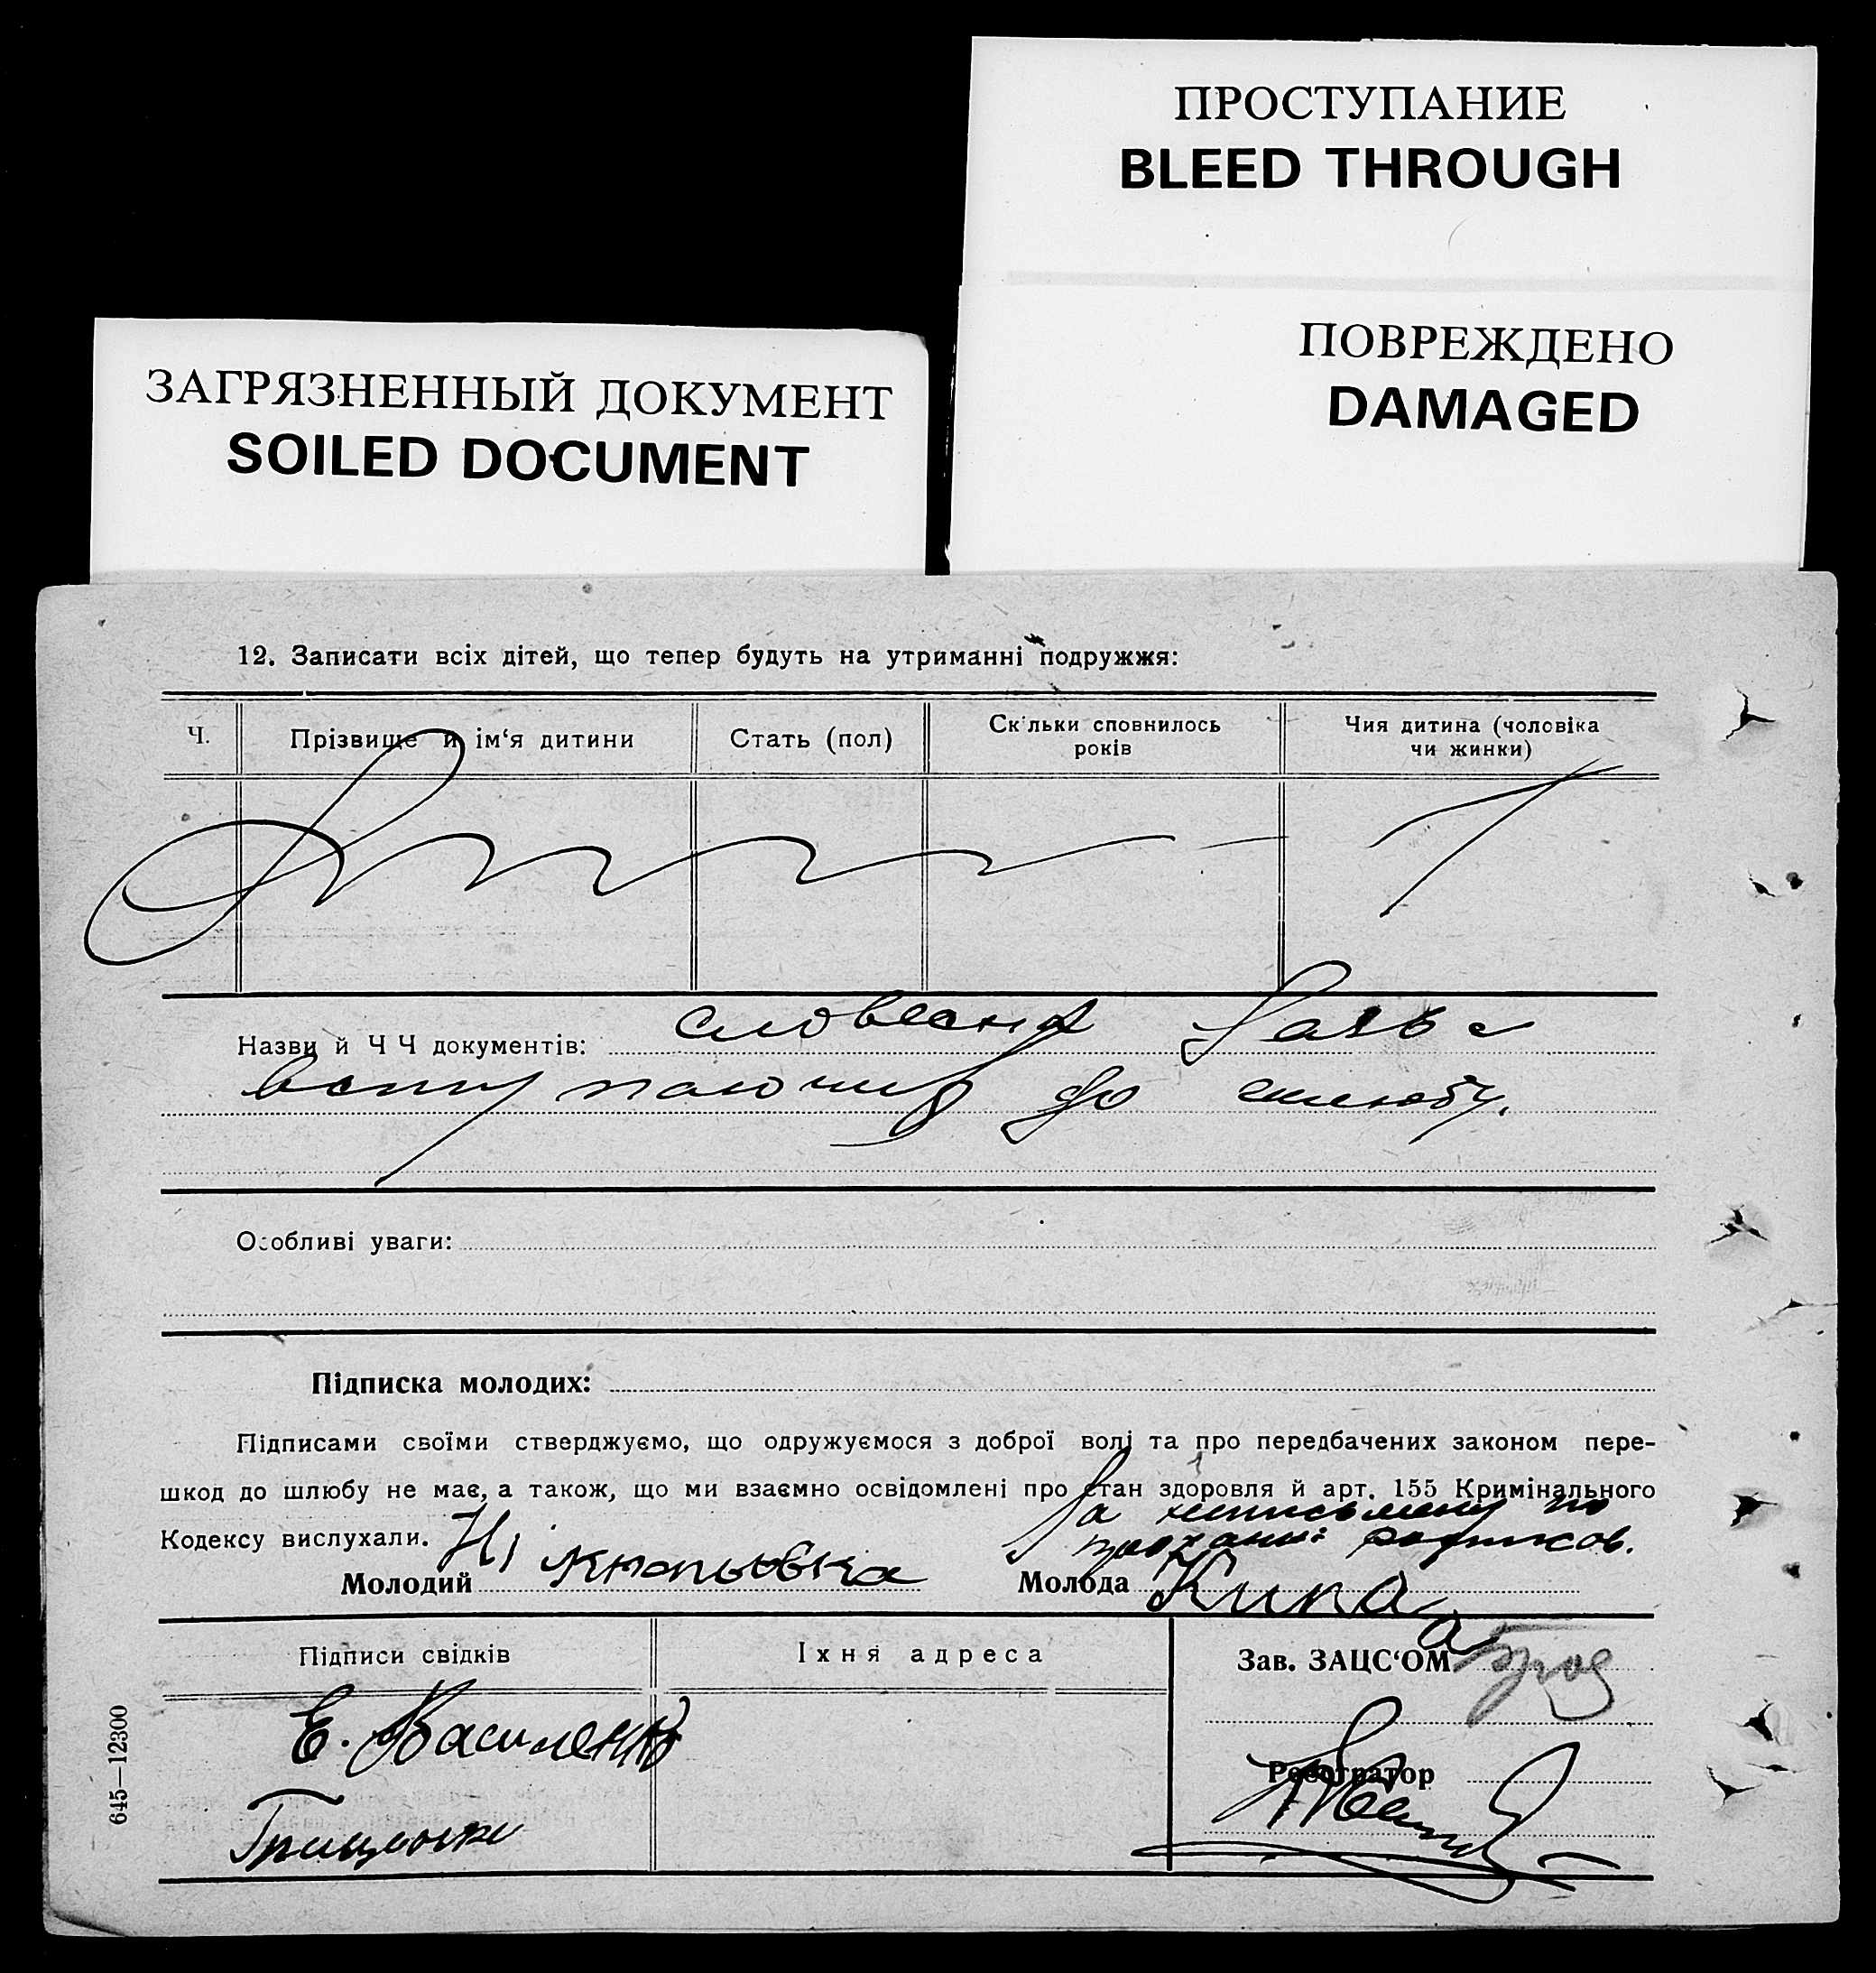 ПРОСТУПАНИЕ
BLEED THROUGH
ПОВРЕЖДЕНО
DAMAGED
ЗАГРЯЗНЕННЫЙ ДОКУМЕНТ
SOILED DOCUMENT
12. Записати всіх дітей, що тепер будуть на утриманні подружжя:
Ч. Прізвище й ім‘я дитини Стать (пол) Скільки сповнилось років Чия дитина (чоловіка чи жинки)
Назви й Ч Ч документів: словесна заява
вступаючих до шлюбу.
Особливі уваги:
Підписка молодих:
Підписами своїми стверджуємо, що одружуємося з доброї волі та про передбачених законом пере-
шкод до шлюбу не має, а також, що ми взаємно освідомлені про стан здоровля й арт. 155 Кримінального
Кодексу вислухали.
За неписьмену по
Молодий Молода
Підписи свідків Їхня адреса Зав. ЗАЦС‘ОМ
Е. Василенко
Реєстратор
Грищенко
645—12300